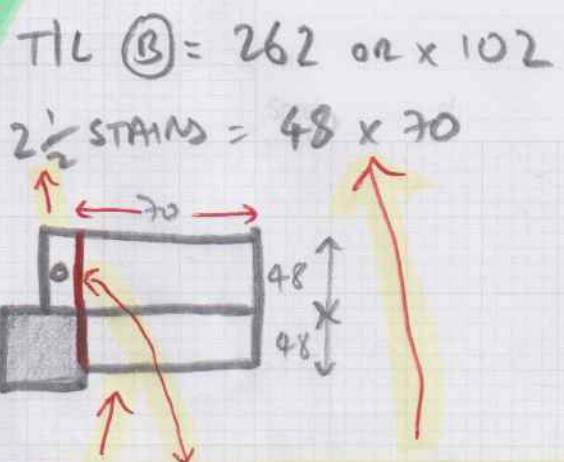 T/L Ⓑ = 262 or x 102
2½ STAIRS = 48 x 70
70
48
48